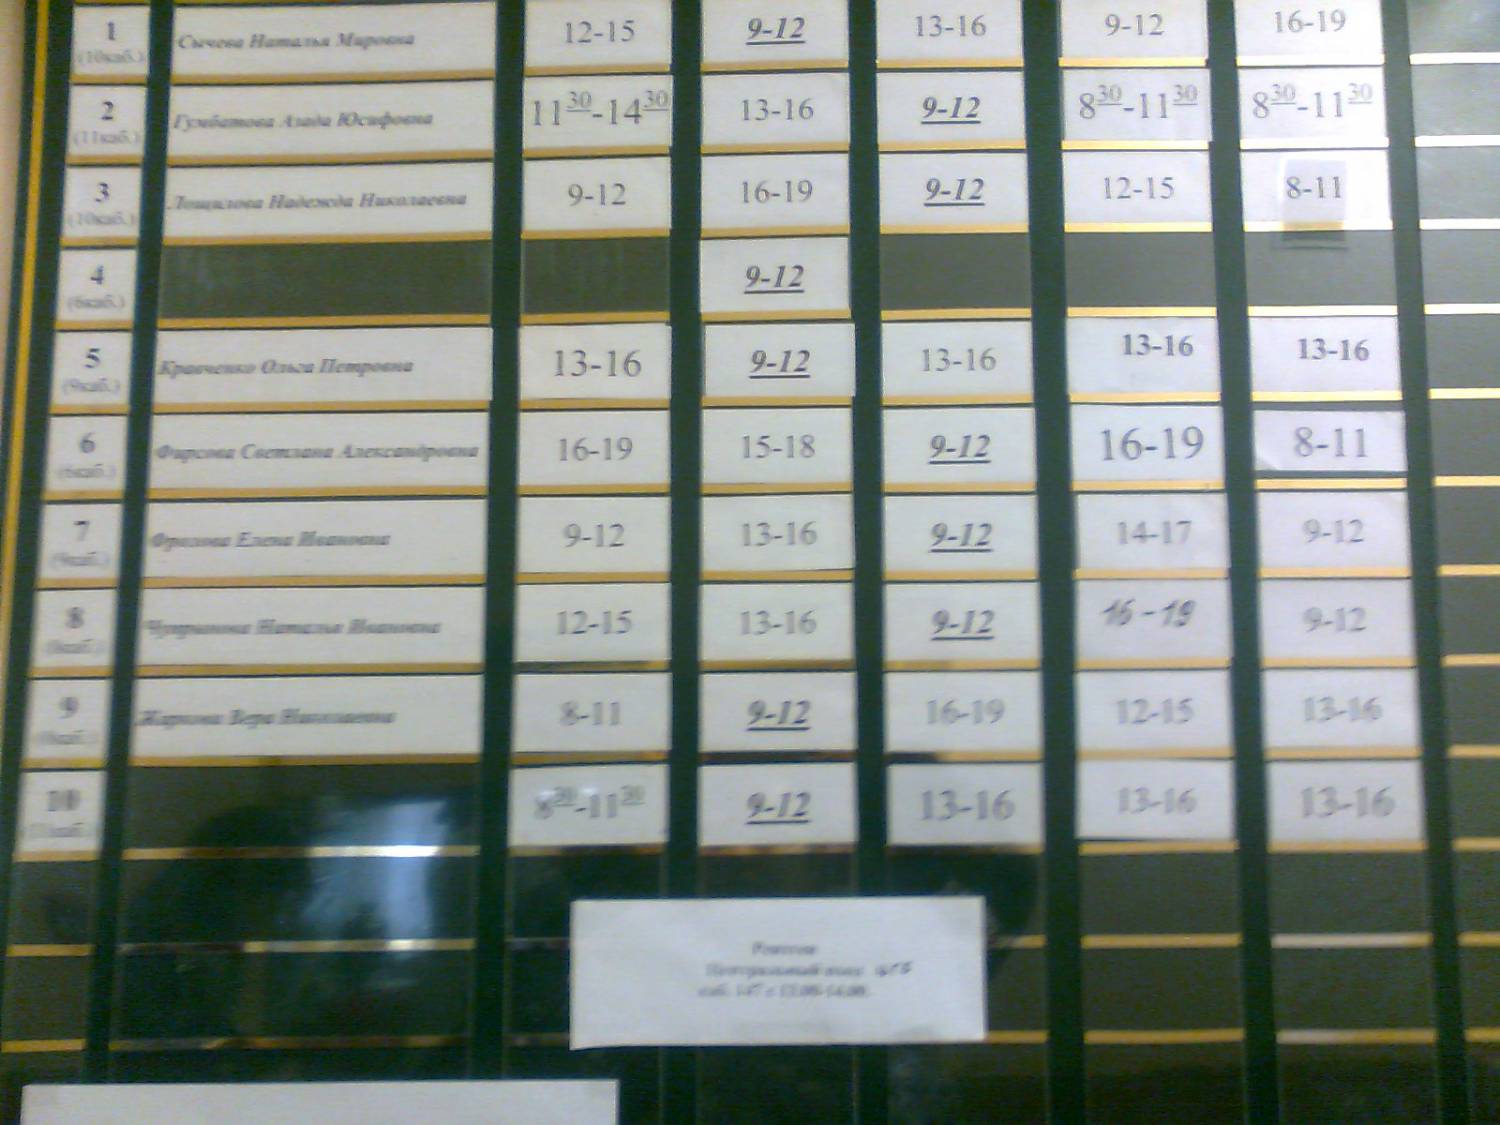 1 Сычева Наталья Мировна 12-15 9-12 13-16 9-12 16-19
(10каб.)
2 Гумбатова Азада Юсифовна 11 30-14 30 13-16 9-12 8 30-11 30 8 30-11 30
(11каб.)
3 Лощилова Надежда Николаевна 9-12 16-19 9-12 12-15 8-11
(10каб.)
4 9-12
(6каб.)
5 Кравченко Ольга Петровна 13-16 9-12 13-16 13-16 13-16
(9каб.)
6 Фирсова Светлана Александровна 16-19 15-18 9-12 16-19 8-11
(6каб.)
7 Фролова Елена Ивановна 9-12 13-16 9-12 14-17 9-12
(9каб.)
8 Наталья Ивановна 12-15 13-16 9-12 16-19 9-12
9 Вера Николаевна 8-11 9-12 16-19 12-15 13-16
10 8 30-11 30 9-12 13-16 13-16 13-16
(11каб.)
Рентген
Центральный вход
каб. 147 с 13.00-14.00.